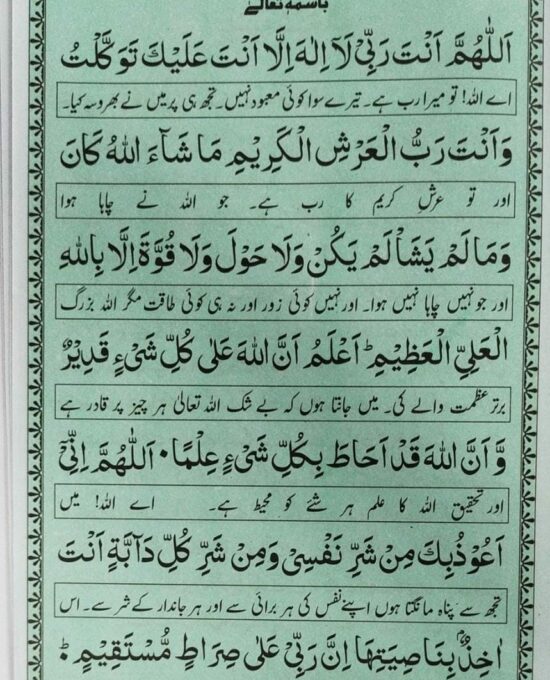 باسمہٖ تعالےٰ
اَللّٰهُمَّ اَنْتَ رَبِّیْ لَآ اِلٰهَ اِلَّا اَنْتَ عَلَيْكَ تَوَكَّلْتُ
اے اللہ! تو میرا رب ہے۔ تیرے سوا کوئی معبود نہیں۔ تجھ ہی پر میں نے بھروسہ کیا۔
وَاَنْتَ رَبُّ الْعَرْشِ الْكَرِيْمِ مَا شَآءَ اللهُ كَانَ
اور تو عرشِ کریم کا رب ہے۔ جو اللہ نے چاہا ہوا
وَمَا لَمْ يَشَأْ لَمْ يَكُنْ وَلَا حَوْلَ وَلَا قُوَّةَ اِلَّا بِاللهِ
اور جو نہیں چاہا نہیں ہوا۔ اور نہیں کوئی زور اور نہ ہی کوئی طاقت مگر اللہ بزرگ
الْعَلِيِّ الْعَظِيْمِ ط اَعْلَمُ اَنَّ اللهَ عَلٰی كُلِّ شَیْءٍ قَدِيْرٌ
برتر عظمت والے کی۔ میں جانتا ہوں کہ بے شک اللہ تعالیٰ ہر چیز پر قادر ہے
وَّ اَنَّ اللهَ قَدْ اَحَاطَ بِكُلِّ شَیْءٍ عِلْمًا ۰ اَللّٰهُمَّ اِنِّیْٓ
اور تحقیق اللہ کا علم ہر شئے کو محیط ہے۔ اے اللہ! میں
اَعُوْذُ بِكَ مِنْ شَرِّ نَفْسِیْ وَمِنْ شَرِّ كُلِّ دَآبَّةٍ اَنْتَ
تجھ سے پناہ مانگتا ہوں اپنے نفس کی ہر برائی سے اور ہر جاندار کے شر سے۔ اس
اٰخِذٌۢ بِنَاصِيَتِهَا اِنَّ رَبِّیْ عَلٰی صِرَاطٍ مُّسْتَقِيْمٍ ط